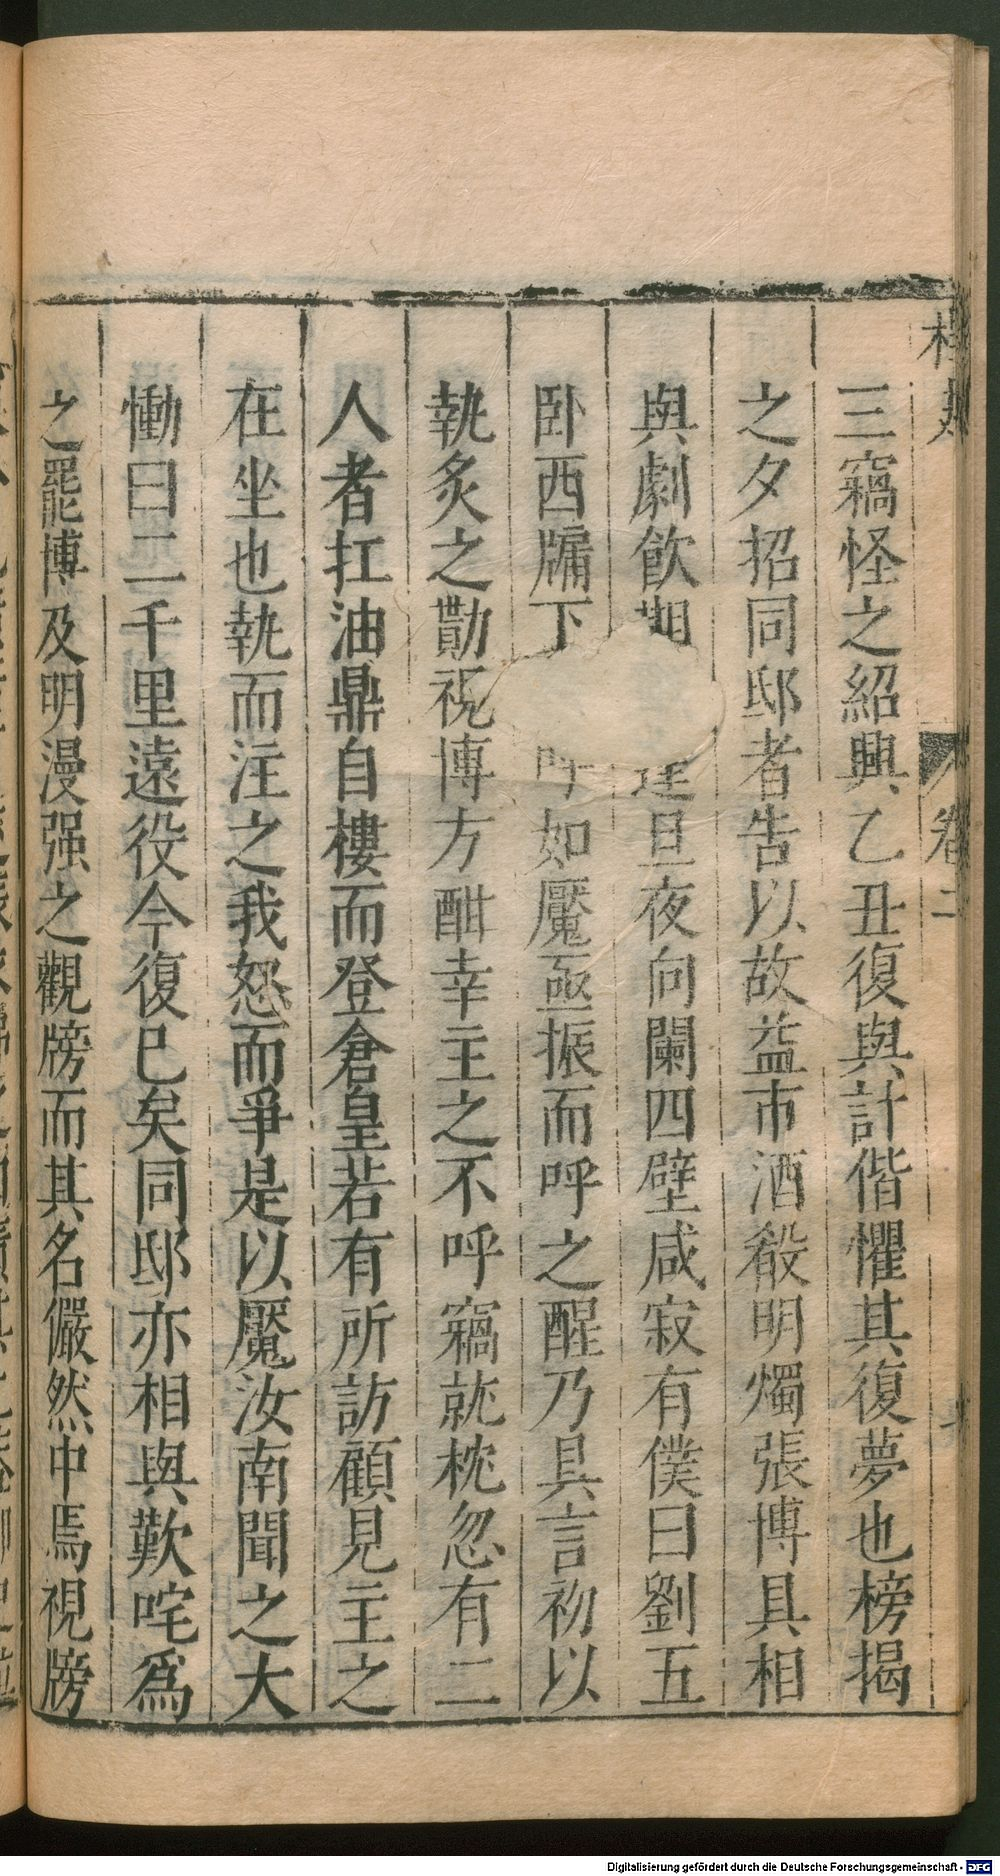 三竊怪之紹興乙丑復與計偕懼其復夢也榜揭
之夕招同邸者告以故益市酒殽明燭張博具相
與劇飲期 達旦夜向闌四壁咸寂有僕曰劉五
卧西牖下 呼如魘亟振而呼之醒乃具言初以
執炙之勩視博方酣幸主之不呼竊就枕忽有二
人者扛油鼎自樓而登倉皇若有所訪顧見主之
在坐也執而注之我怒而爭是以魘汝南聞之大
慟曰二千里遠役今復已矣同邸亦相與歎咤爲
之罷博及明漫强之觀牓而其名儼然中焉視牓
卷二
Digitalisierung gefördert durch die Deutsche Forschungsgemeinschaft - DFG